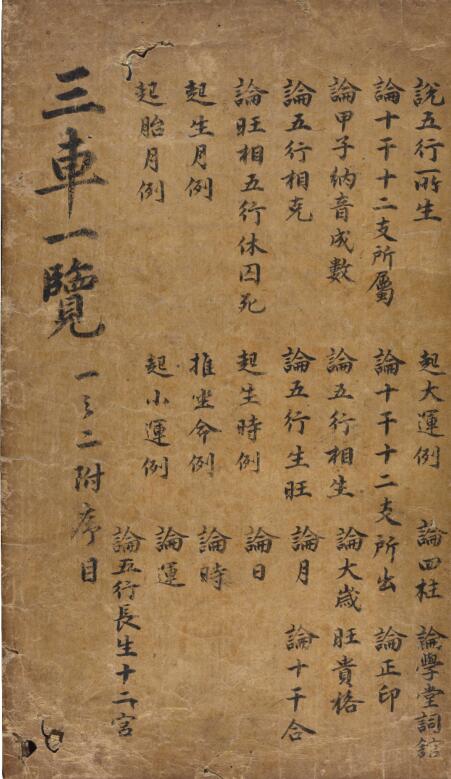 說五行所生 起大運例 論四柱 論學堂詞舘
論十干十二支所屬 論十干十二支所出 論正印
論甲子納音成數 論五行相生 論大歲 旺貴格
論五行相克 論五行生旺 論月 論十干合
論旺相五行休囚死 起生時例 論日
起生月例 推坐命例 論時
起胎月例 起小運例 論運
論五行長生十二宮
三車一覽 一之二附序目